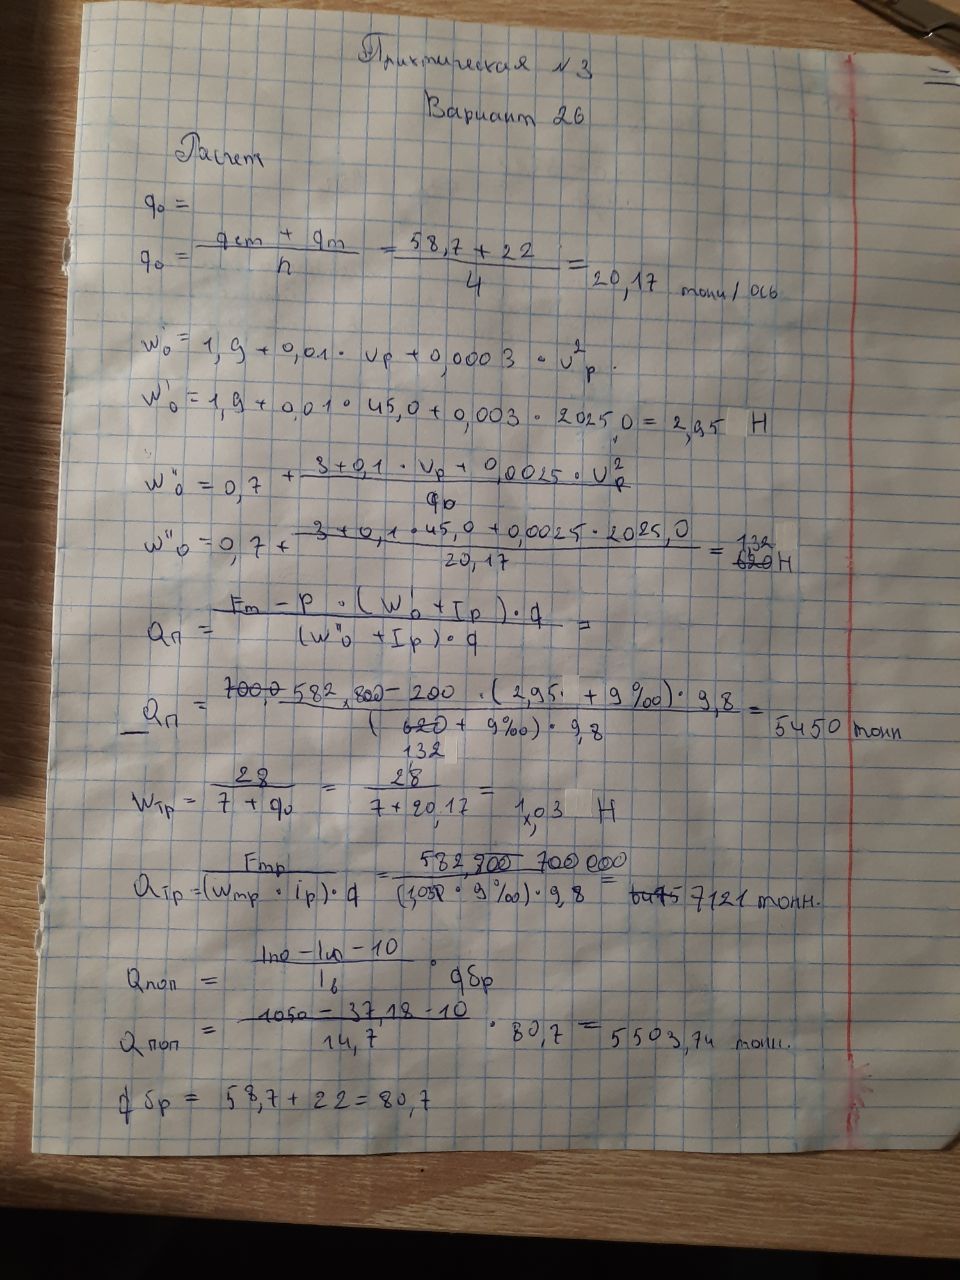 Практическая №3
Вариант 26
Расчет
q₀ =
q₀ = (qст + qт) / n = (58,7 + 22) / 4 = 20,17 тонн/ось
w'₀ = 1,9 + 0,01 · vp + 0,0003 · v²p.
w'₀ = 1,9 + 0,01 · 45,0 + 0,003 · 2025,0 = 2,95 Н
w"₀ = 0,7 + (3 + 0,1 · vp + 0,0025 · v²p) / q₀
w"₀ = 0,7 + (3 + 0,1 · 45,0 + 0,0025 · 2025,0) / 20,17 = 1,32 Н
Qп = (Fт - P · (w'₀ + Ip) · q) / ((w"₀ + Ip) · q) =
Qп = (582,800 - 200 · (2,95 + 9‰) · 9,8) / ((1,32 + 9‰) · 9,8) = 5450 тонн
wтр = 28 / (7 + q₀) = 28 / (7 + 20,17) = 1,03 Н
Qтр = Fтр / ((wтр · ip) · q) = 700 000 / ((1,03 · 9‰) · 9,8) = 57121 тонн.
Qпоп = (lпо - lл - 10) / lв · qбр
Qпоп = (1050 - 37,18 - 10) / 14,7 · 80,7 = 5503,74 тонн.
qбр = 58,7 + 22 = 80,7